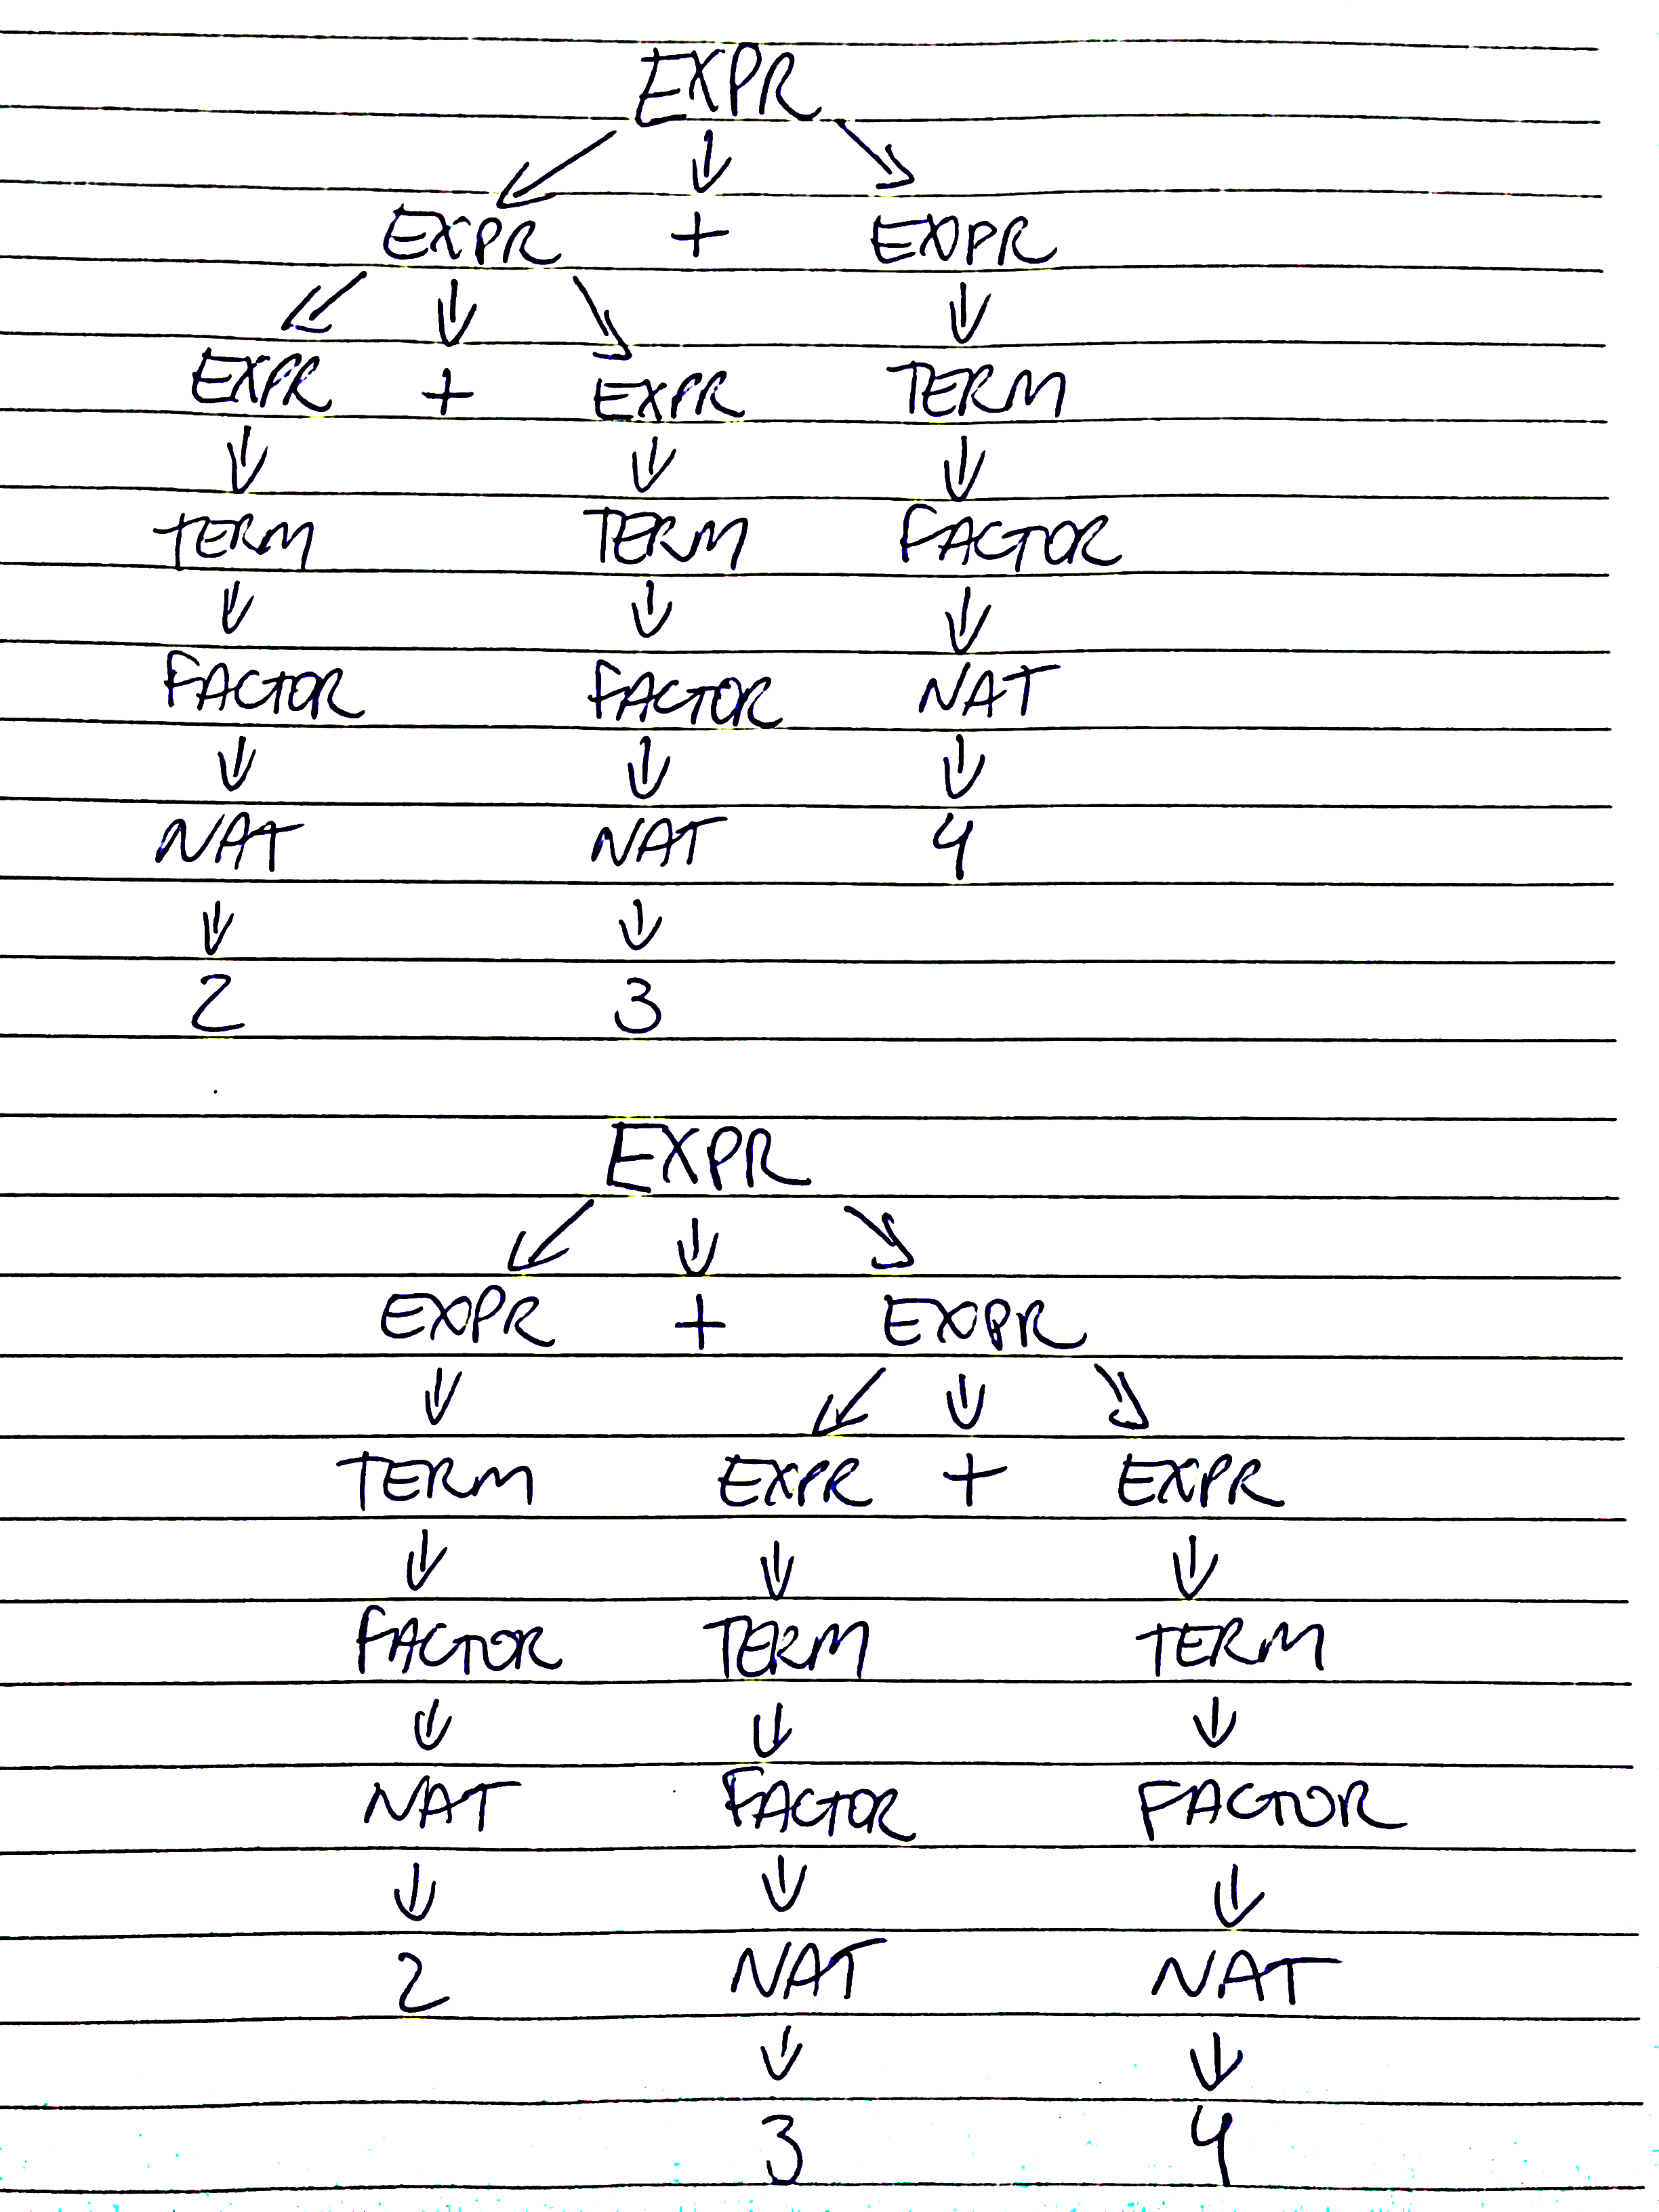 EXPR
EXPR + EXPR
EXPR + EXPR TERM
TERM TERM FACTOR
FACTOR FACTOR NAT
NAT NAT 4
2 3
EXPR
EXPR + EXPR
TERM EXPR + EXPR
FACTOR TERM TERM
NAT FACTOR FACTOR
2 NAT NAT
3 4